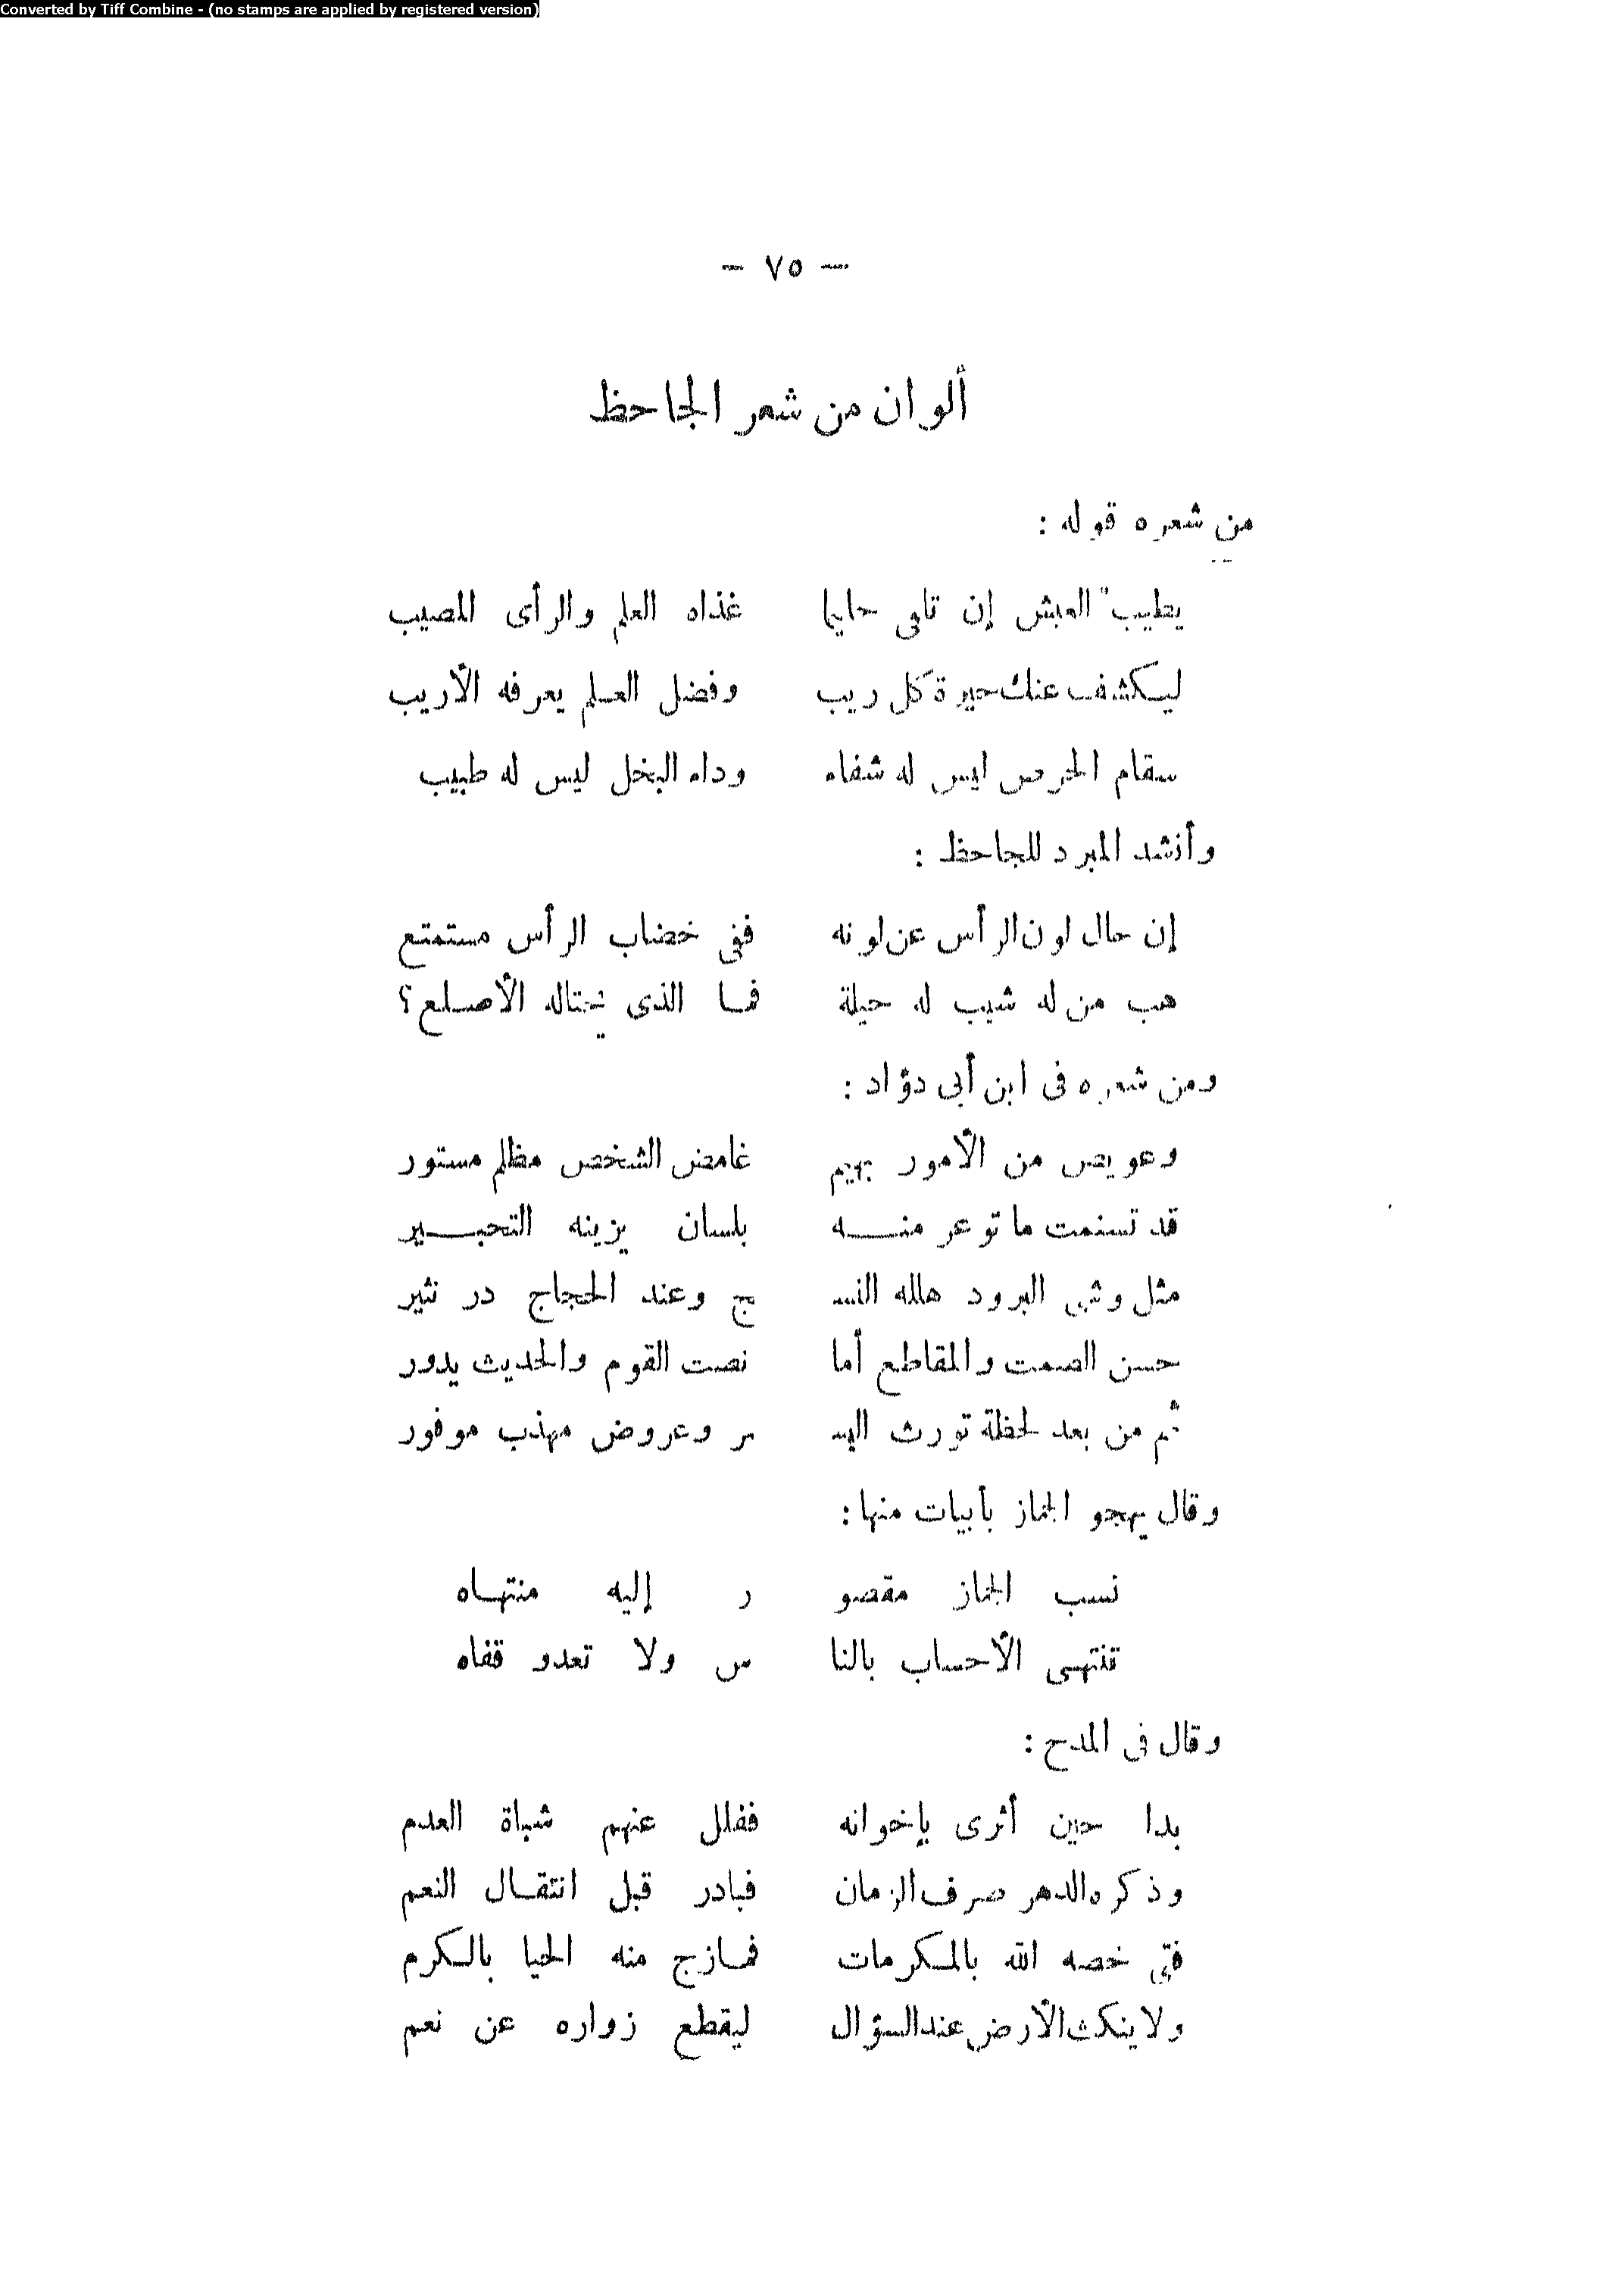 Converted by Tiff Combine - (no stamps are applied by registered version)
— ٧٥ —
ألوان من شعر الجاحظ
من شعره قوله :
يطيب العيش إن تلقى حليما غذاه العلم والرأى المصيب
ليكشف عنك حيرة كل ريب وفضل العلم يعرفه الأريب
سقام الحرص ليس له شفاء وداء البخل ليس له طبيب
وأنشد المبرد للجاحظ :
إن حال لون الرأس عن لونه ففى خضاب الرأس مستمتع
هب من له شيب له حيلة فما الذى يحتاله الأصلع ؟
ومن شعره فى ابن أبى دؤاد :
وعويص من الأمور بهيم غامض الشخص مظلم مستور
قد تسنمت ما توعر منه بلسان يزينه التحبير
مثل وشى البرود هلله النسـ ـج وعند الحجاج در نثير
حسن الصمت والمقاطع أما نصت القوم والحديث يدور
ثم من بعد لحظة تورث اليسـ ـر وعروض مهذب موفور
وقال يهجو الجماز بأبيات منها :
نسب الجماز مقصو ر إليه منتهاه
تنتهى الأحساب بالنا س ولا تعدو قفاه
وقال فى المدح :
بدا حين أثرى بإخوانه ففلل عنهم شباة العدم
وذكره الدهر صرف الزمان فبادر قبل انتقال النعم
فتى خصه الله بالمكرمات فمازج منه الحيا بالكرم
ولا ينكث الأرض عند السؤال ليقطع زواره عن نعم